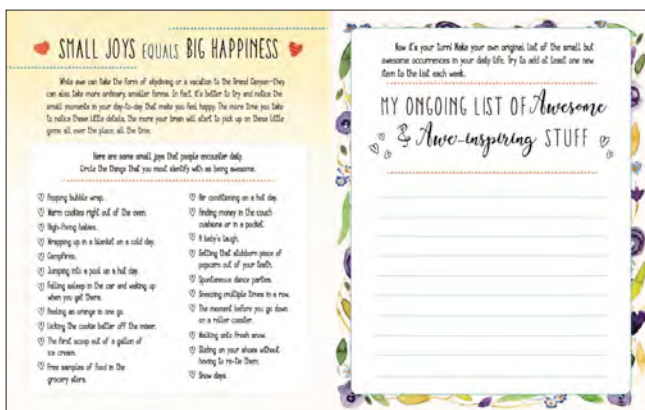 SMALL JOYS EQUALS BIG HAPPINESS
While awe can take the form of skydiving or a vacation to the Grand Canyon—they
can also take more ordinary, smaller forms. In fact, it's better to try and notice the
small moments in your day-to-day that make you feel happy. The more time you take
to notice these little details, the more your brain will start to pick up on these little
gems all over the place, all the time.
Here are some small joys that people encounter daily.
Circle the things that you most identify with as being awesome.
Popping bubble wrap.
Warm cookies right out of the oven.
High-fiving babies.
Wrapping up in a blanket on a cold day.
Campfires.
Jumping into a pool on a hot day.
Falling asleep in the car and waking up
when you get there.
Peeling an orange in one go.
Licking the cookie batter off the mixer.
The first scoop out of a gallon of
ice cream.
Free samples of food in the
grocery store.
Air conditioning on a hot day.
Finding money in the couch
cushions or in a pocket.
A baby's laugh.
Getting that stubborn piece of
popcorn out of your teeth.
Spontaneous dance parties.
Sneezing multiple times in a row.
The moment before you go down
on a roller coaster.
Walking onto fresh snow.
Sliding on your shoes without
having to re-tie them.
Snow days.
Now it's your turn! Make your own original list of the small but
awesome occurrences in your daily life. Try to add at least one new
item to the list each week.
MY ONGOING LIST OF Awesome
& Awe-inspiring STUFF